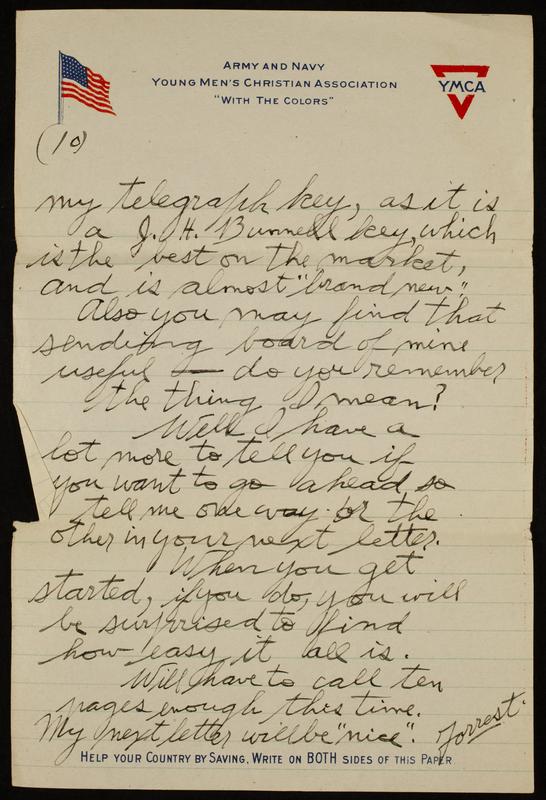 ARMY AND NAVY
YOUNG MEN'S CHRISTIAN ASSOCIATION
"WITH THE COLORS"
YMCA
(10)
my telegraph key, as it is
a J. H. Bunnell key, which
is the best on the market,
and is almost "brand new".
Also you may find that
sending board of mine
useful — do you remember
the thing I mean?
Well I have a
lot more to tell you if
you want to go ahead, so
tell me one way or the
other in your next letter.
When you get
started, if you do, you will
be surprised to find
how easy it all is.
Will have to call ten
pages enough this time.
My next letter will be "nice". Forrest.
HELP YOUR COUNTRY BY SAVING, WRITE ON BOTH SIDES OF THIS PAPER